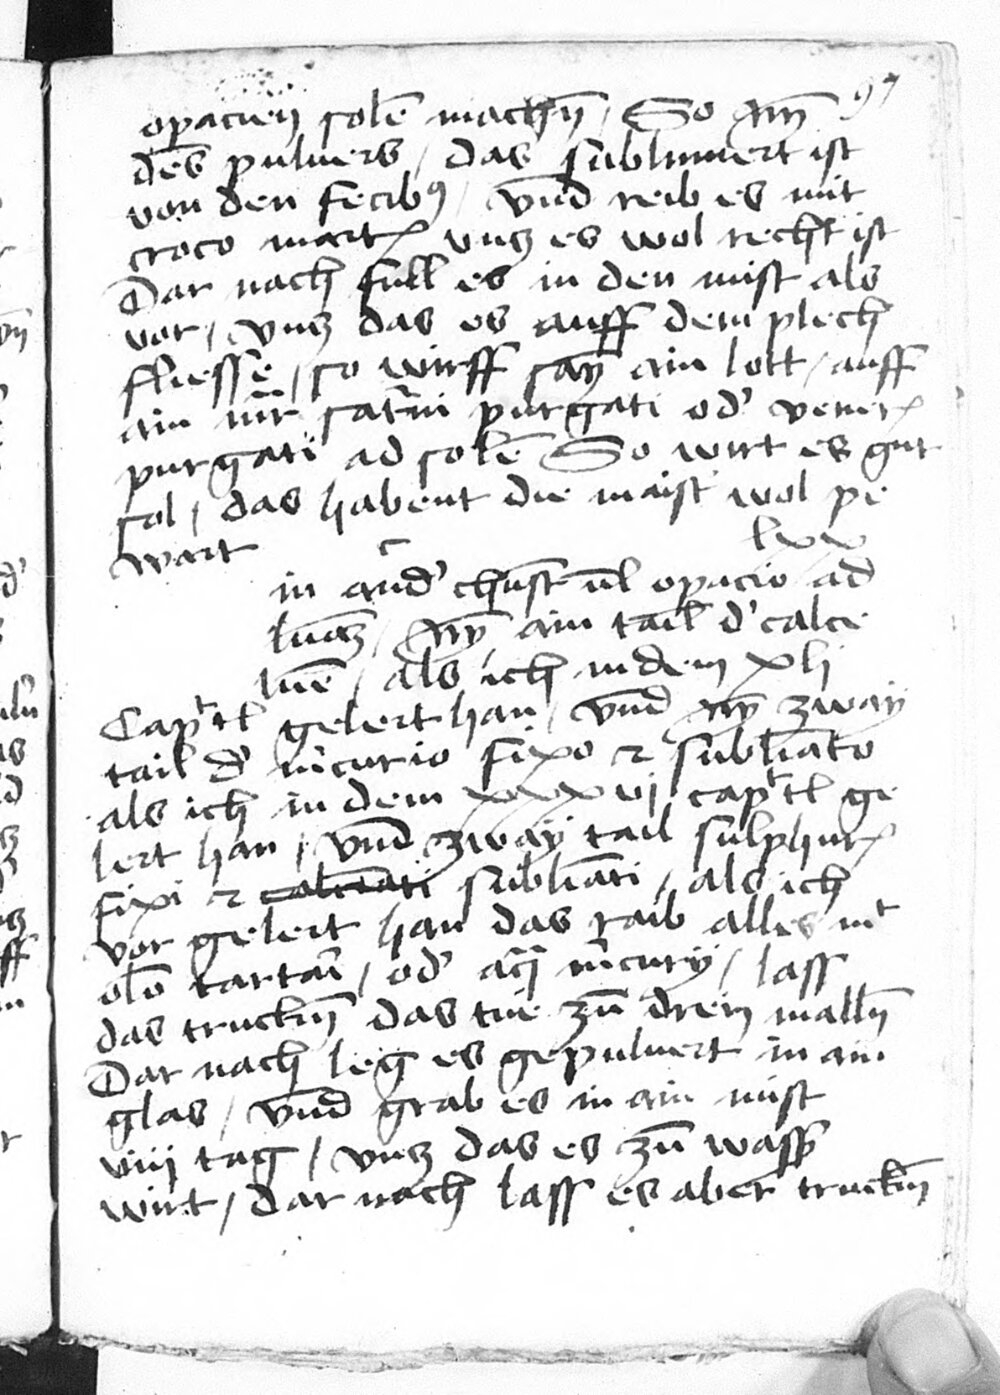 97
opacien solē machn̄ / So Nȳ
des pulvers / das sublimiert ist
von den fecib9 / vnd reib es mit
croco mart vnz es wol recht ist
Dar nach full es in den mist als
vor / vnz das es auff dem plech
fliesse / so wirff sein ain lott / auff
ain mr saturni purgati od' vener
purgati ad solē So wirt es gut
sol / das habent die maist wol pe
wart
lxx
in and' chunst vl opacio ad
lunā / Nȳ ain tail d' calce
lune / als ich in dem xlj
Capitl gelert han / vnd Nȳ zway
tail d' mcurio fixo et sublīato
als ich in dem xxxvj capitl ge
lert han / vnd zway tail sulphur
fixi et calcinati sublīati / als ich
vor gelert han das raib alles mt
oleo tartari / od' aq mcurij / lass
das truckn̄ das tue zu drein malln̄
Dar nach leg es gepulvert in ain
glas / vnd grab es in ain mist
viij tag / vnz das es zu wasser
wirt / dar nach lass es aber truckn̄